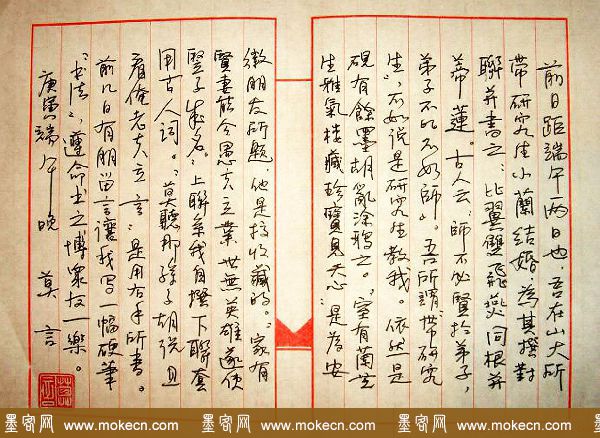 前日距端午两日也,吾在山大所
带研究生小蘭结婚,为其撰对
联并书之:比翼雙飛燕,同根并
蒂蓮。古人云:师不必賢於弟子,
弟子不必不如師。吾所謂“带研究
生”,不如说是研究生教我。依然一是
硯有餘墨,胡亂涂鸦之。“室有蘭芝
生雅氣,楼藏珍寶見天心”是为安
徽朋友所题,他是搞收藏的。“家有
賢妻能令愚夫立業,世無英雄遂使
竪子成名。”上聯系我自撰,下聯套
用古人词。“莫聽那孫子胡说,且
看俺老夫立言”是用右手所書。
前几日有朋留言讓我写一幅硬筆
“书法”,遵命书之,博眾友一樂。
庚寅端午晚 莫言
墨客网 www.mokecn.com 墨客网 www.mokecn.com 墨客网